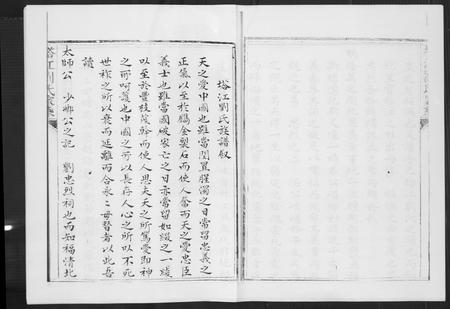 塔江劉氏族譜叙
天之愛中國也雖當閏置腥濁之日常留忠義之
正氣以至於鏤金裂石而使人奮而天之愛忠臣
義士也雖當國破家亡之日亦常留如綴之一綫
以至於豐枝茂幹而使人思夫天之所篤愛即神
之所呵護也中國之所以長存人心之所以不死
世祚之所以衰而延離而合永永毋替者以此吾
讀
太師公 少卿公之記 劉忠烈祠也而知福清北
塔江劉氏家集